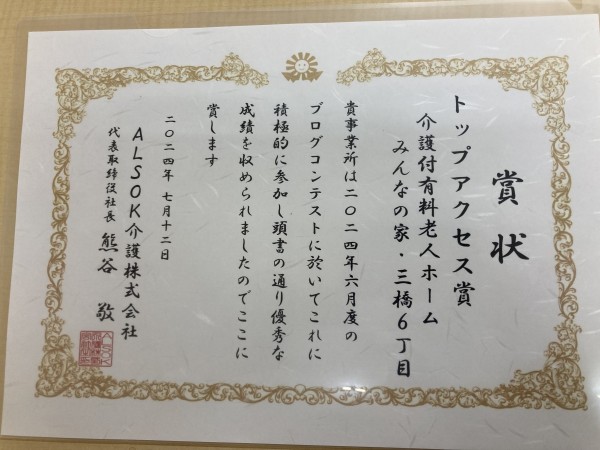 賞状
トップアクセス賞
介護付有料老人ホーム
みんなの家・三橋6丁目
貴事業所は二〇二四年六月度の
ブログコンテストに於いてこれに
積極的に参加し頭書の通り優秀な
成績を収められましたのでここに
賞します
二〇二四年 七月十二日
ALSOK介護株式会社
代表取締役社長 熊谷 敬